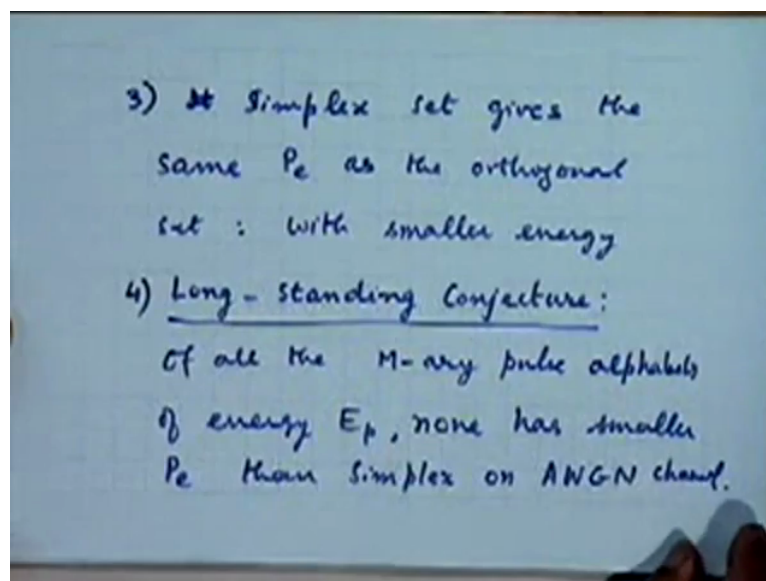 3) Simplex set gives the
same Pe as the orthogonal
set : with smaller energy
4) Long - Standing Conjecture :
Of all the M-ary pulse alphabets
of energy Ep, none has smaller
Pe than Simplex on AWGN channel.